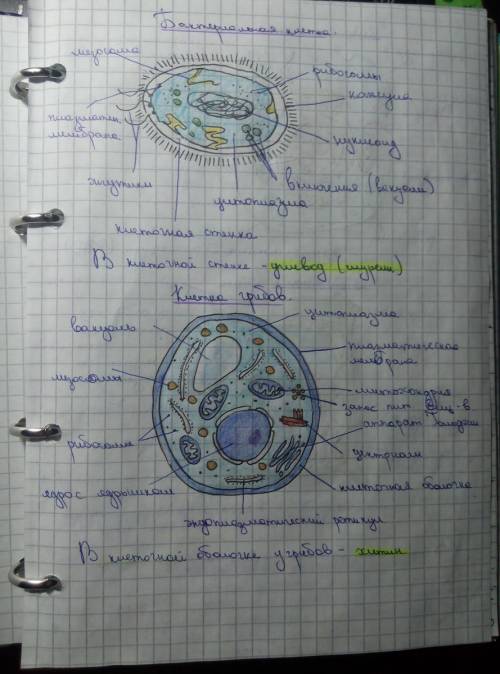 Бактериальная клетка.
мезосома
рибосомы
капсула
плазматич.
мембрана
нуклеоид
жгутики
включения (вакуоли)
цитоплазма
клеточная стенка
В клеточной стенке - углевод (муреин)
Клетка грибов.
цитоплазма
вакуоль
плазматическая
мембрана
лизосомы
митохондрия
запас пит. вещ-в
аппарат Гольджи
рибосомы
центриоли
ядро с ядрышком
клеточная оболочка
эндоплазматический ретикул
В клеточной оболочке у грибов - хитин